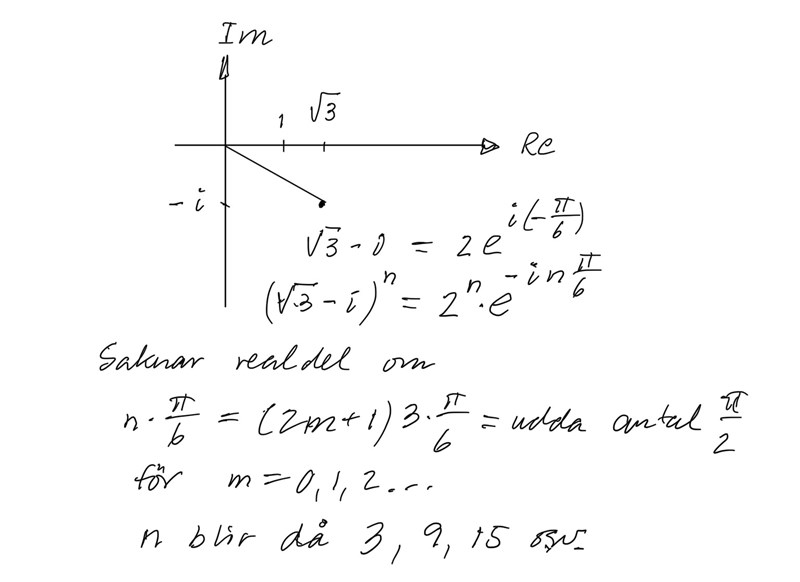 Im
1 √3
Re
-i
√3 - 0 = 2e^{i(-π/6)}
(√3 - i)^n = 2^n · e^{-in π/6}
Saknar realdel om
n · π/6 = (2m+1) 3 · π/6 = udda antal π/2
för m = 0, 1, 2 ...
n blir då 3, 9, 15 osv.